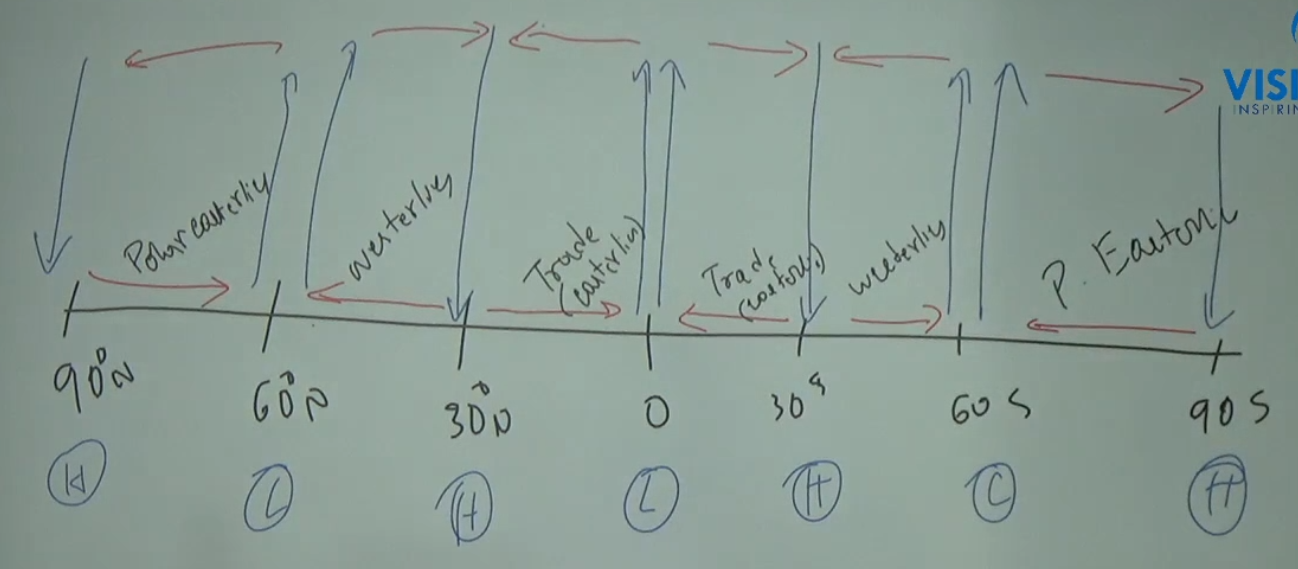 VISI
INSPIRIN
Polar easterlies
westerlies
Trade
(easterlies)
Trade
westerlies
P. Easterli
90°N
60°N
30°N
0
30 S
60 S
90 S
H
L
H
L
H
L
H